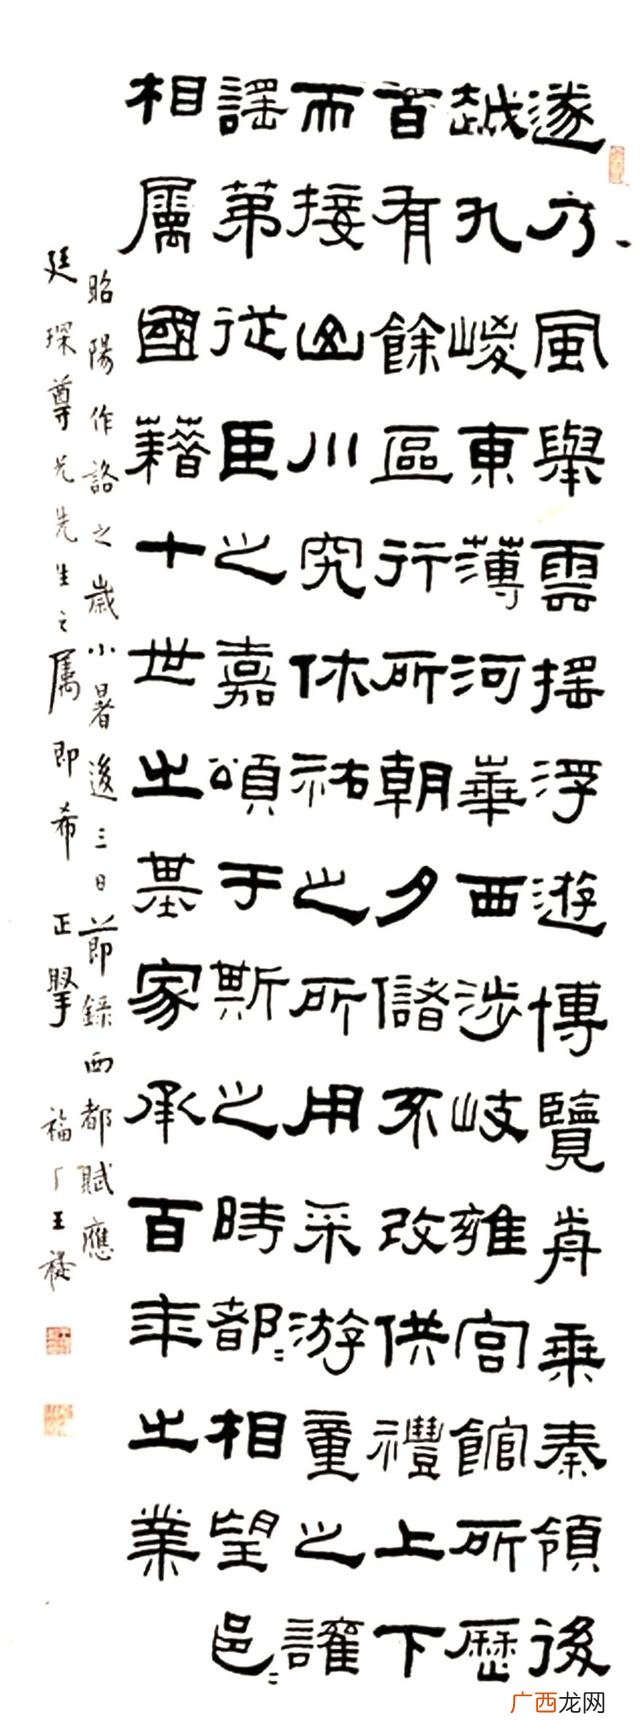 遂乃風舉雲搖浮遊博覽前乘秦領後
越九嵕東薄河華西涉岐雍宮館所歷
百有餘區行所朝夕儲不改供禮上下
而接山川究休祐之所用采游童之讙
謠第從臣之嘉頌于斯之時都=相望邑=
相屬國藉十世之基家承百年之業
昭陽作詻之歲小暑後三日節錄西都賦應
廷琛尊兄先生之屬即希 正 福厂王禔
广西龙网